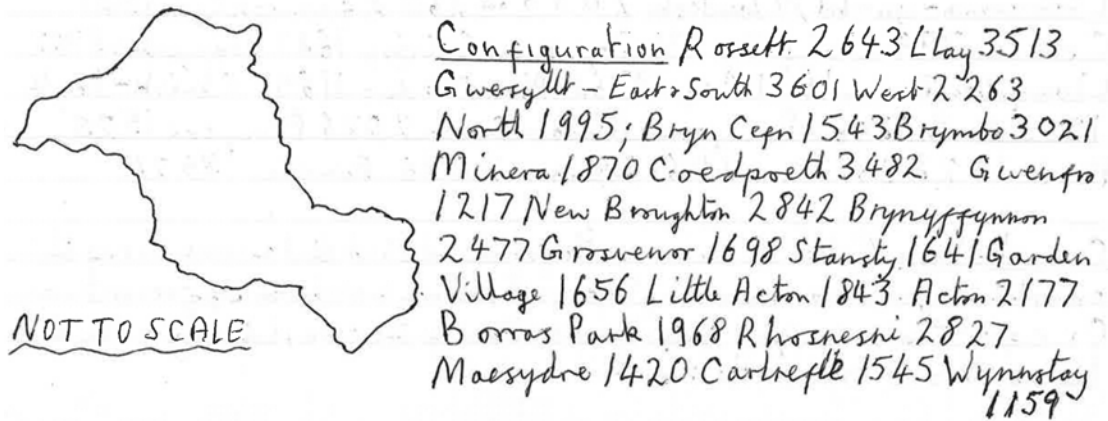 Configuration Rossett 2643 Llay 3513
Gwersyllt - East & South 3601 West 2263
North 1995; Bryn Cefn 1543 Brymbo 3021
Minera 1870 Coedpoeth 3482 Gwenfro
1217 New Broughton 2842 Brynyffynnon
2477 Grosvenor 1698 Stansty 1641 Garden
Village 1656 Little Acton 1843 Acton 2177
Borras Park 1968 Rhosnesni 2827
Maesydre 1420 Cartrefle 1545 Wynnstay
1159
NOT TO SCALE